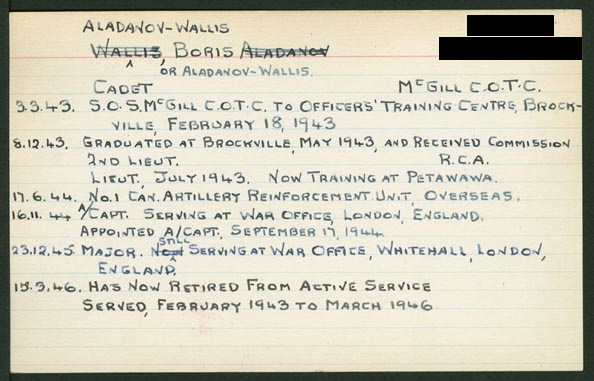 ALADANOV-WALLIS
WALLIS, BORIS ALADANOV
OR ALADANOV-WALLIS.
CADET McGILL C.O.T.C.
3.3.43. S.O.S. McGILL C.O.T.C. TO OFFICERS' TRAINING CENTRE, BROCK-
VILLE, FEBRUARY 18, 1943
8.12.43. GRADUATED AT BROCKVILLE, MAY 1943, AND RECEIVED COMMISSION
2ND LIEUT. R.C.A.
LIEUT, JULY 1943. NOW TRAINING AT PETAWAWA.
17.6.44. NO.1 CAN. ARTILLERY REINFORCEMENT UNIT, OVERSEAS.
16.11.44 A/CAPT. SERVING AT WAR OFFICE, LONDON, ENGLAND.
APPOINTED A/CAPT, SEPTEMBER 17, 1944
STILL
23.12.45. MAJOR. NOW SERVING AT WAR OFFICE, WHITEHALL, LONDON,
ENGLAND.
15.3.46. HAS NOW RETIRED FROM ACTIVE SERVICE
SERVED, FEBRUARY 1943 TO MARCH 1946